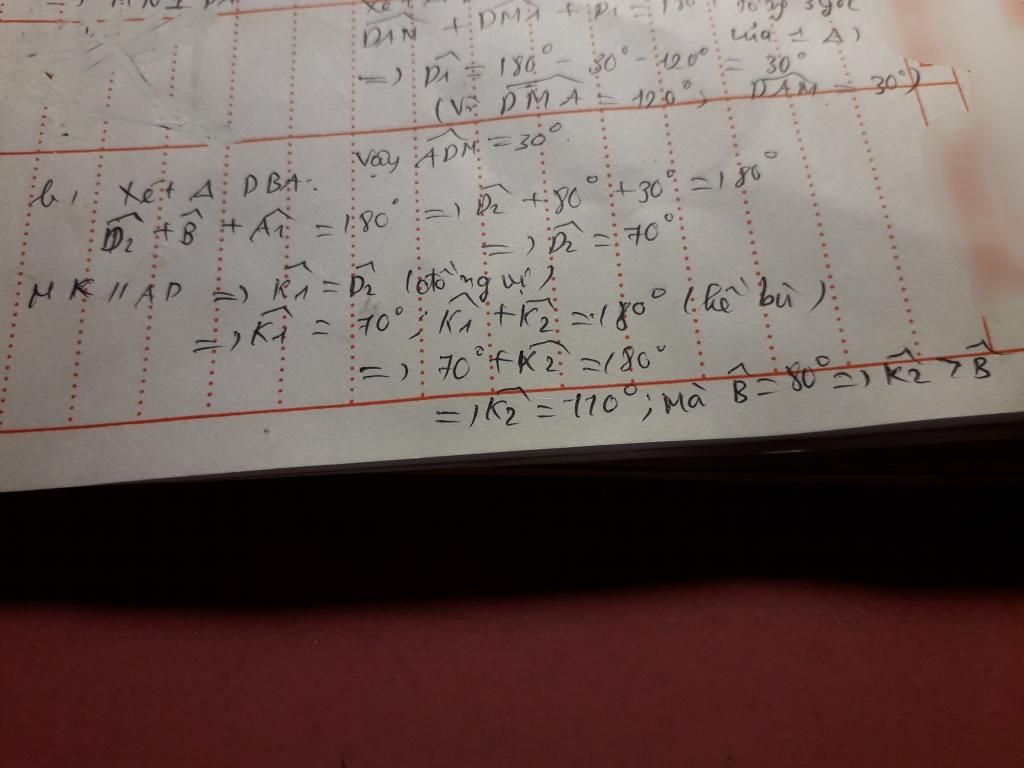 DAM + DMA + D1 = 180
của 1 Δ)
=) D̂1 = 180° - 30° - 120° = 30°
(Vì DMA = 120°, DAM = 30°)
Vậy ADM = 30°
b, Xét Δ DBA:
D̂2 + B̂ + Â1 = 180° =) D̂2 + 80° + 30° = 180°
=) D̂2 = 70°
MK // AD =) K̂1 = D̂2 (đồng vị)
=) K̂1 = 70°; K̂1 + K̂2 = 180° (kề bù)
=) 70° + K̂2 = 180°
=) K̂2 = 110°; mà B̂ = 80° =) K̂2 > B̂